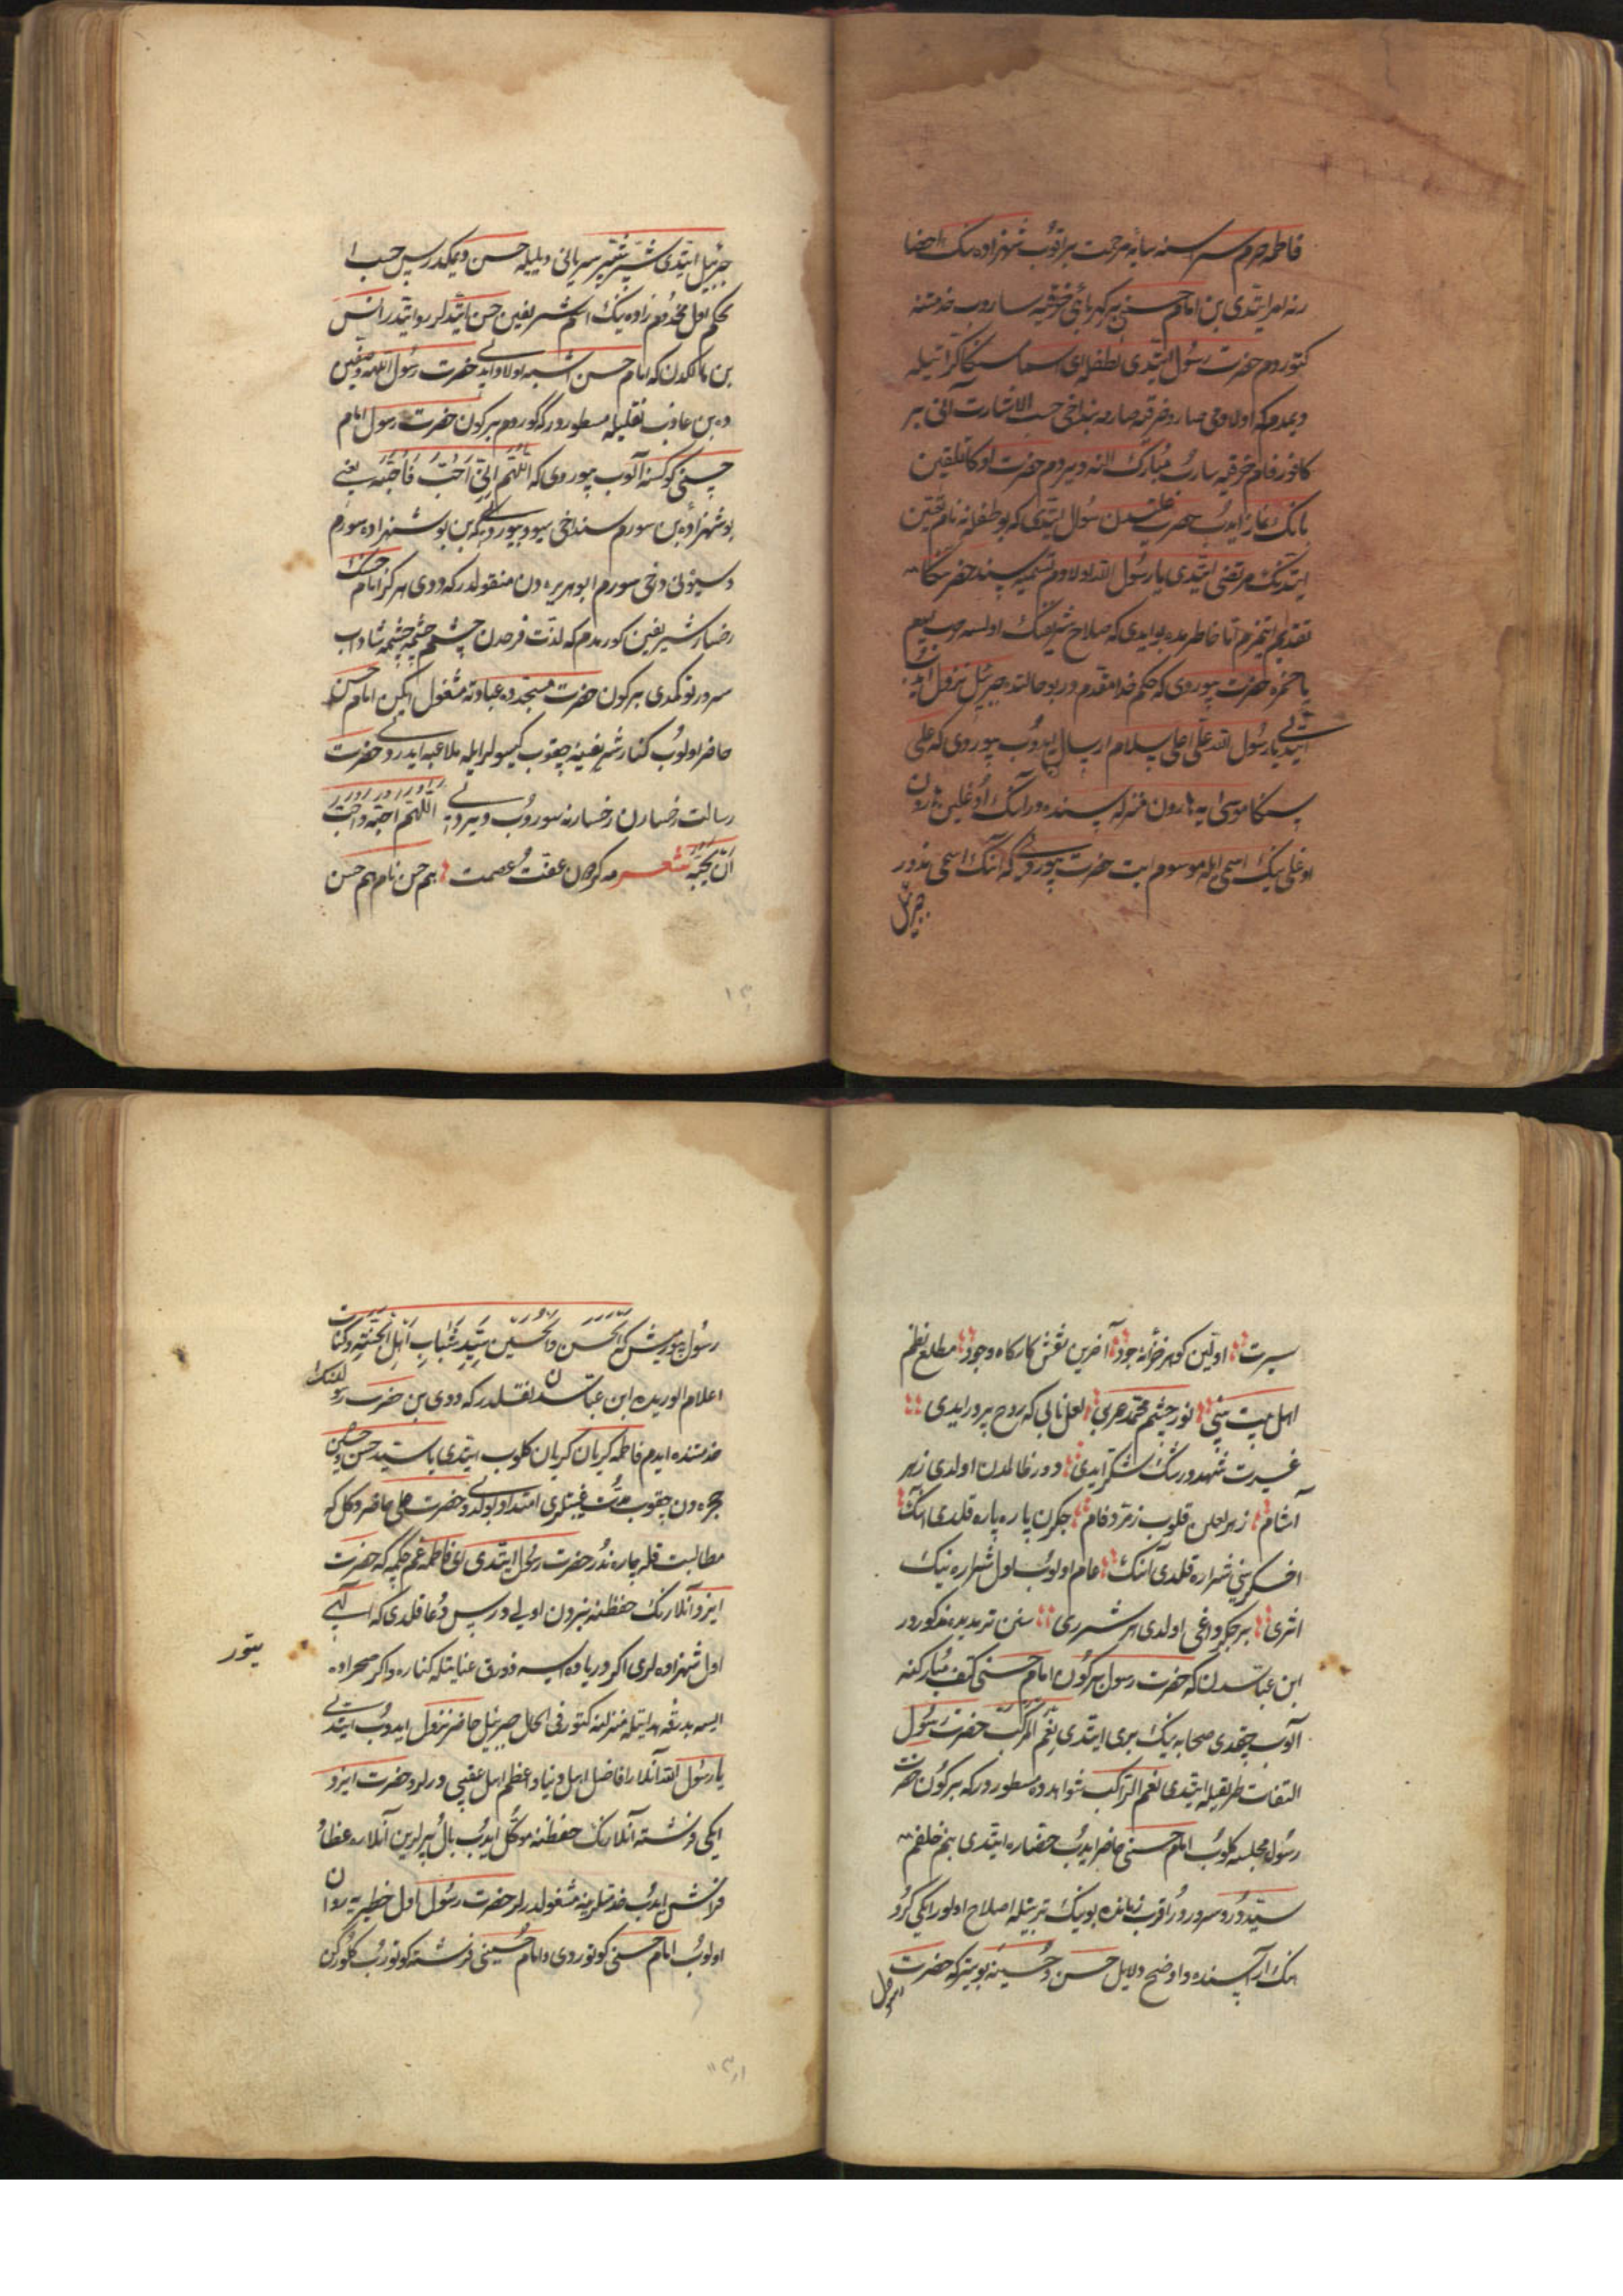 فاطمه حرم سراسنه سایهٔ مرحمت براقوب شهزاده نك احضا
رنه امر ایتدی بن امام حسنی بر کهربائی خرقیه ساروب خدمتنه
کتوردم حضرت رسول ایتدی لطفله ای اسما سکا
دیمدم که اولادمی صارو خرقیه صارمه بنداخی حسب الاشارت آنی بر
کافور فام خرقیه ساروب مبارك الینه ویردم حضرت او کا تلقین
بانك نماز ایدوب حضرت علیدن سؤال ایتدی که بو طفلا نه نام تعیین
ایتدنك مرتضی ایتدی یا رسول الله اولادم تسمیه سنده حضرتکا
تقدیم ایتمزم اما خاطرمده بو ایدی که صلاح شریفنك اولسه حرب
یا حمزه حضرت بیوردی که حکم خدا مقدم در بو حالتده جبرئیل نزول ایدوب
ایتدی یا رسول الله علی اعلی سلام ارسال ایدوب بیوردی که علی
سکا موسی یه هارون منزله سنده در آنك اوغلین هارون
اوغلی نیك اسمی ایله موسوم ایت حضرت بیوردی که آنك اسمی ندور
جبرئیل
جبرئیل ایتدی شبر شبر سریانی دیلیله حسن دیمکدر پس حسب ا
لحکم اول مخدوم زاده نیك اسم شریفین حسن ایتدیلر روایتدر انس
بن مالکدن که امام حسن اشبه اولاد ایدی حضرت رسول الله و صفین
ده بن عازب نقلیله مسطوردر که کوردم بر کون حضرت رسول امام
حسنی کوکسنه آلوب بیوردی که اللهم انی احبه فاحبه یعنی
بو شهزاده بن سورم سنداخی سیو و بیوردی که بن بو شهزاده سورم
و سیونی دخی سورم ابو هریره دن منقولدر که دیدی هر کز امام حسنك
رخسار شریفین کورمدم که لذت فرحدن چشم چشمه چشمه شاداب
سرور توکمدی بر کون حضرت مسجدده عباداته مشغول ایکن امام حسن
حاضر اولوب کنار شریفینه چقوب کیسولر ایله ملاعبه ایدردی حضرت
رسالت رخسارن رخسارنه سوروب دیردی اللهم احبه واحب
من یحبه شعر مه کردون عفت و عصمت هم حسن نام هم حسن
سیرت اولین کوهر خزانهٔ جود آخرین نقش کارکاه وجود مطلع نظم
اهل بیت نبی نور چشم محمد عربی لعل نابی که روح پرور ایدی
غیرت شهد و رشك شکر ایدی دور ظالمدن اولدی زهر
آشام زهر لعلن قلوب زمرد فام جکرن پاره پاره قلدی انك
اخکرینی شراره قلدی آنك عام اولوب اول شراره نیك
اثری بر جکر داغی اولدی هر شرری سنن ترمذیده مذکوردر
ابن عباسدن که حضرت رسول بر کون امام حسنی کتف مبارکنه
آلوب چیقدی صحابه نیك بری ایتدی نعم المرکب حضرت رسول
التفات طریقیله ایتدی نعم الراکب شواهدده مسطوردر که بر کون حضرت
رسول مجلسه کلوب امام حسنی حاضر ایدوب حضاره ایتدی بنم خلفم
سیددر و سروردر اقرب زمانده بونیك تربیتیله اصلاح اولور ایکی کروه
نك آراسنده و اوضح دلایل حسن و حسینه بو یتر که حضرت
رسول
رسول بیورمش که الحسن والحسین سید شباب اهل الجنة و کتاب
اعلام الوریده ابن عباسدن نقلدر که دیدی بن حضرت رسول اللهك
خدمتنده ایدم فاطمه کریان کریان کلوب ایتدی یا سید حسن و حسین
حجره دن چقوب مدت غیبتلری امتداد بولدی و حضرت علی حاضر دکل که
مطالبت قله چاره ندر حضرت رسول ایتدی ای فاطمه غم چکمه که حضرت
ایزد آنلارنك حفظنه بزدن اولی در پس دعا قلدی که الهی
اول شهزاده لری اکر دریاده ایسه زورق عنایتله کناره و اکر صحراده
یتور
ایسه بدرقهٔ هدایتله منزلنه کتور فی الحال جبرئیل حاضر نزول ایدوب ایتدی
یا رسول الله آنلار افاضل اهل دنیا و اعظم اهل عقبی درلر و حضرت ایزد
ایکی فرشته آنلارنك حفظنه موکل ایدوب بال و پرلرین آنلاره غطا و
فراش ایدوب خدمتلرینه مشغولدرلر حضرت رسول اول خطیره یه روان
اولوب امام حسنی کوتوردی و امام حسینی فرشته کوتوروب کلورکن